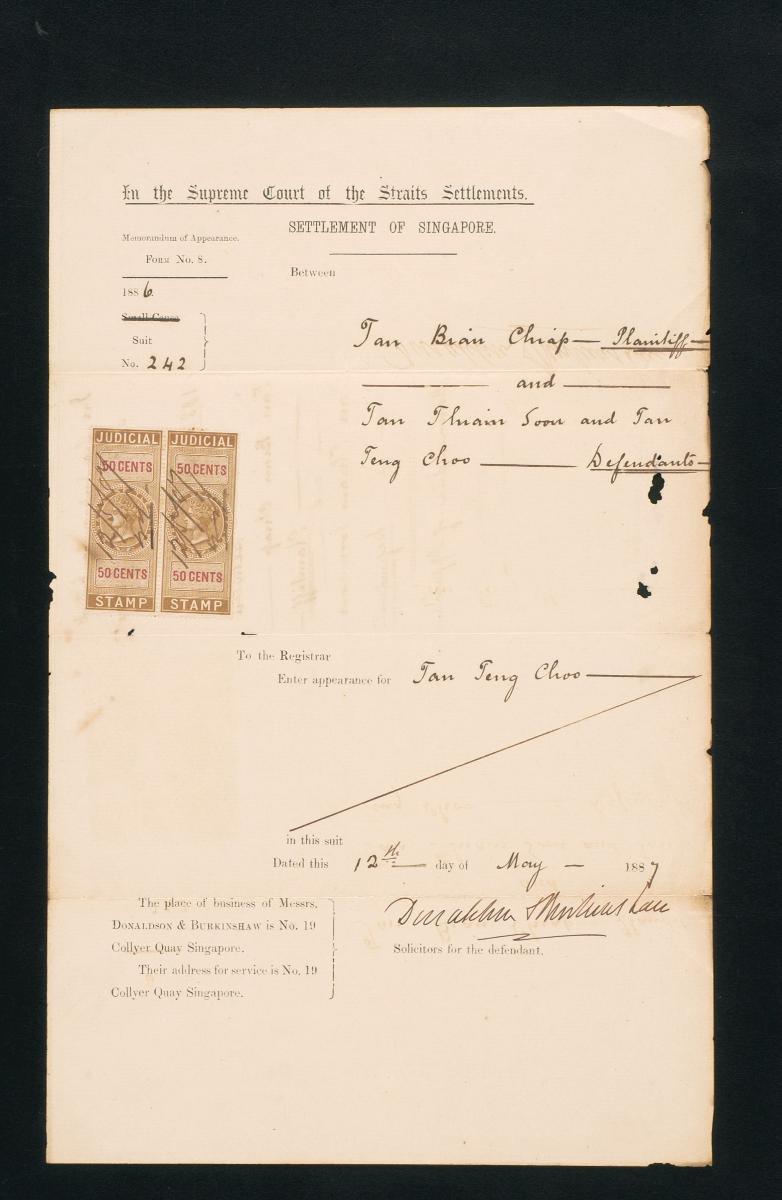 In the Supreme Court of the Straits Settlements.
SETTLEMENT OF SINGAPORE.
Memorandum of Appearance.
FORM No. 8.
Between
1886.
Small Cause
Suit
No. 242
Tan Bian Chiap — Plaintiff —
and
Tan Thuain Soon and Tan
Teng Choo — Defendants —
JUDICIAL JUDICIAL
50 CENTS 50 CENTS
50 CENTS 50 CENTS
STAMP STAMP
To the Registrar
Enter appearance for Tan Teng Choo —
in this suit
Dated this 12th day of May — 1887
The place of business of Messrs.
DONALDSON & BURKINSHAW is No. 19
Collyer Quay Singapore.
Their address for service is No. 19
Collyer Quay Singapore.
Donaldson & Burkinshaw
Solicitors for the defendant.